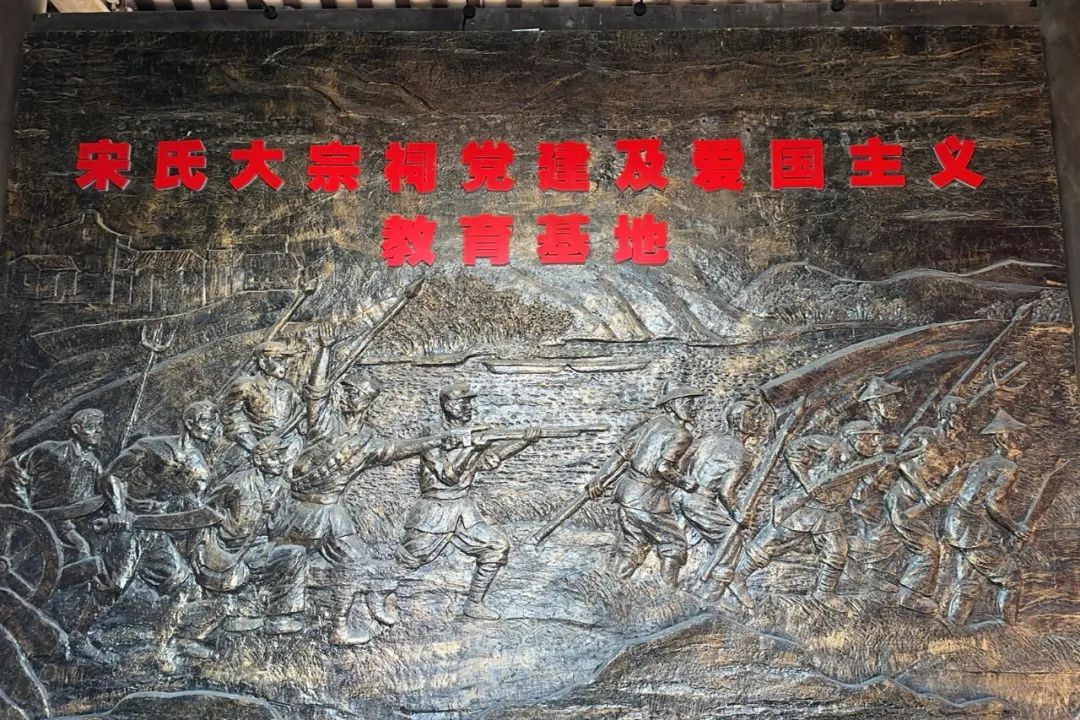 宋氏大宗祠党建及爱国主义
教育基地